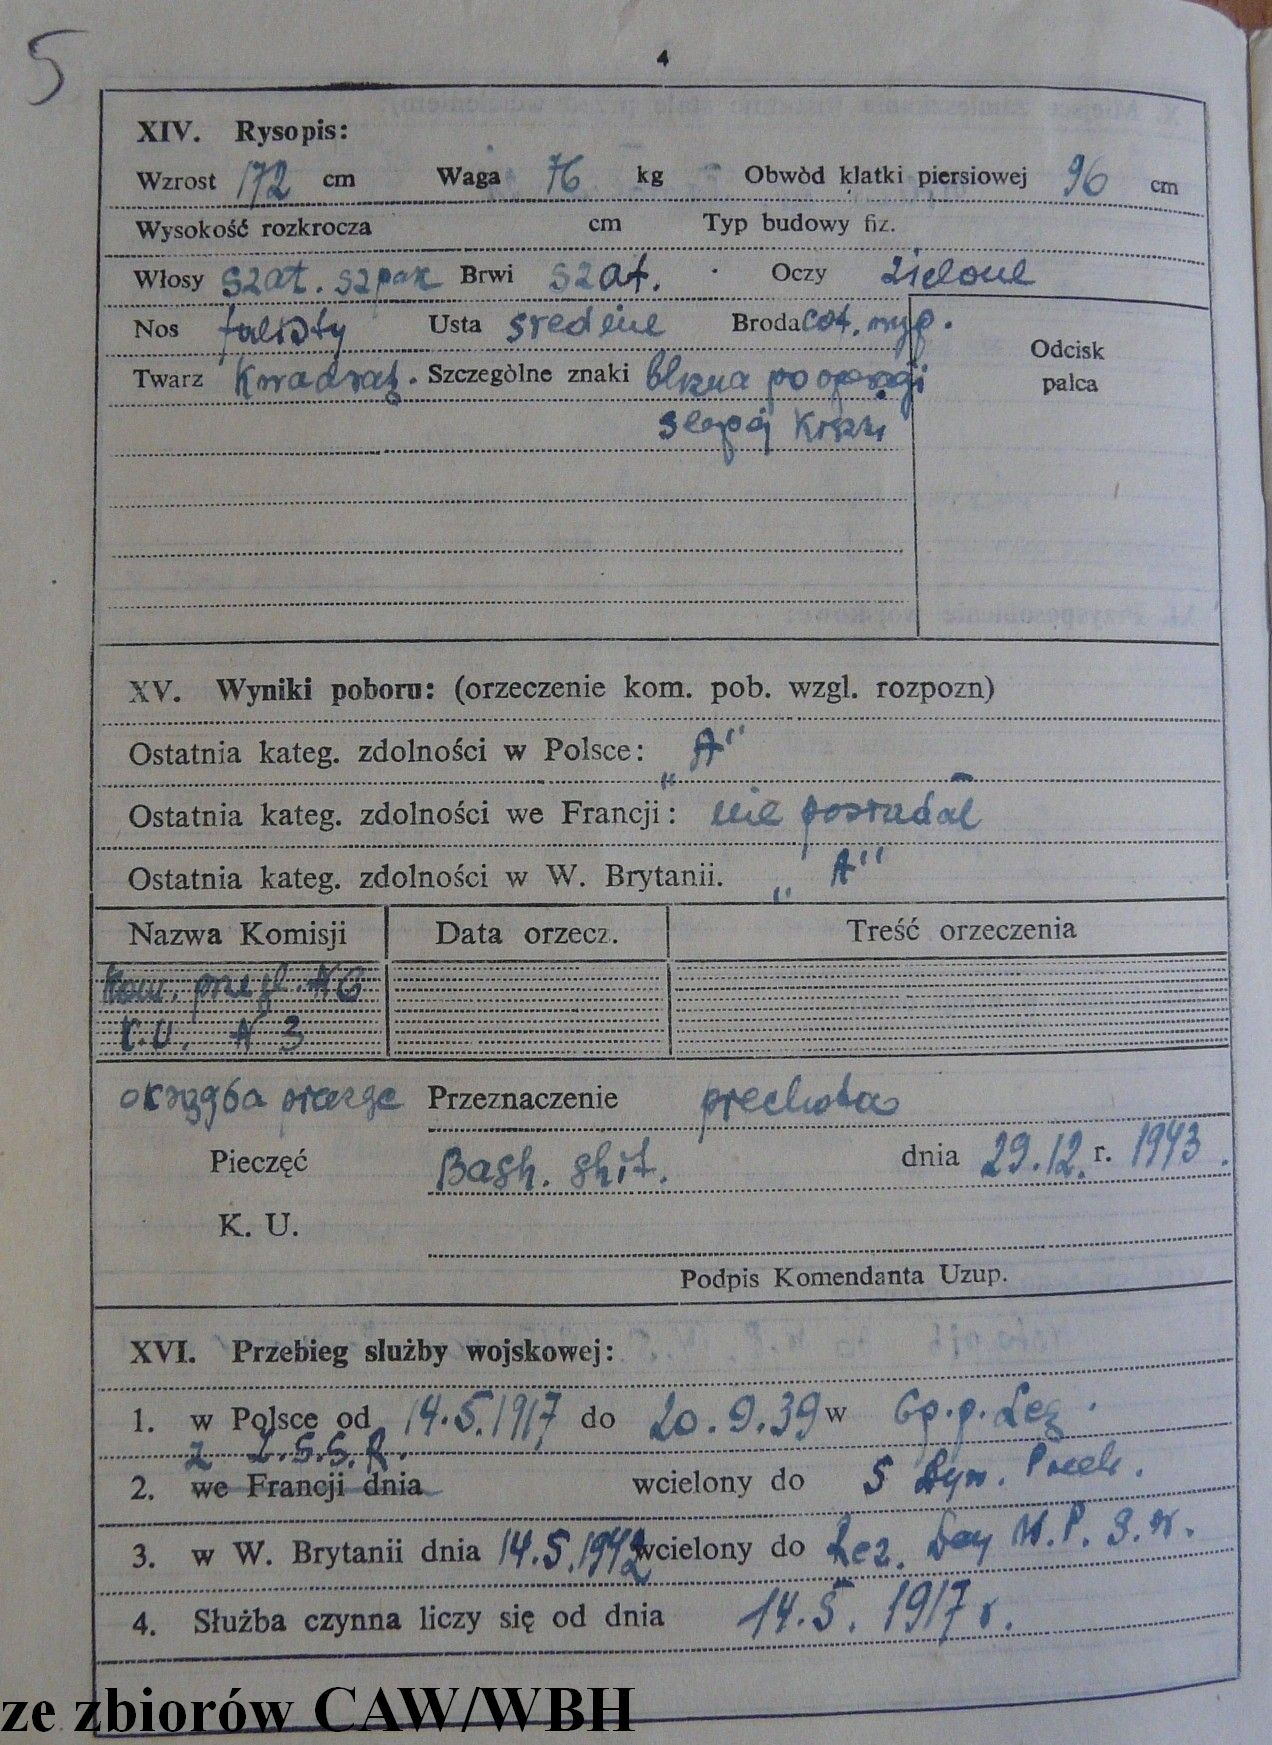 5
4
XIV. Rysopis:
Wzrost 172 cm Waga 76 kg Obwòd klatki piersiowej 96 cm
Wysokość rozkrocza cm Typ budowy fiz.
Włosy szat. szpak Brwi szat. Oczy zielone
Nos falisty Usta srednie Broda cof.
Odcisk palca
Twarz kwadrat. Szczególne znaki blizna po
slepej kiszki
XV. Wyniki poboru: (orzeczenie kom. pob. wzgl. rozpozn)
Ostatnia kateg. zdolności w Polsce: „A"
Ostatnia kateg. zdolności we Francji: nie posiadał
Ostatnia kateg. zdolności w W. Brytanii. „A"
Nazwa Komisji Data orzecz. Treść orzeczenia
Kom. przegl. N 6
K.U. N 3
okrągła Przeznaczenie piechota
Pieczęć dnia 29.12. r. 1943.
K. U.
Podpis Komendanta Uzup.
XVI. Przebieg służby wojskowej:
1. w Polsce od 14.5.1917 do 20.9.39 w Gp.p. Leg.
z Z.S.S.R.
2. we Francji dnia wcielony do 5 Dyw. Piech.
3. w W. Brytanii dnia 14.5.1942 wcielony do Rez.
4. Służba czynna liczy się od dnia 14.5.1917 r.
ze zbiorów CAW/WBH